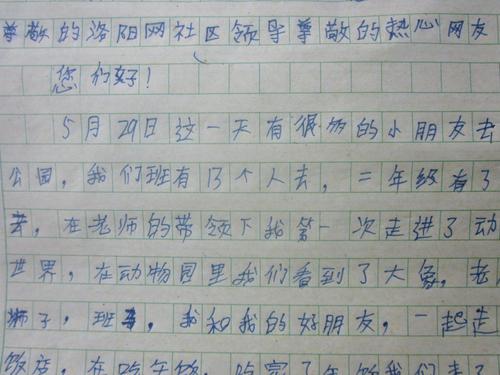 尊敬的洛阳网社区领导尊敬的热心网友
您们好！
5月29日这一天有很多的小朋友去
公园，我们班有13个人去，二年级有了
去，在老师的带领下我第一次走进了动
世界，在动物园里我们看到了大象，老
狮子，班，我和我的好朋友，一起走
饭店，在吃午饭，吃完了午饭我们走了